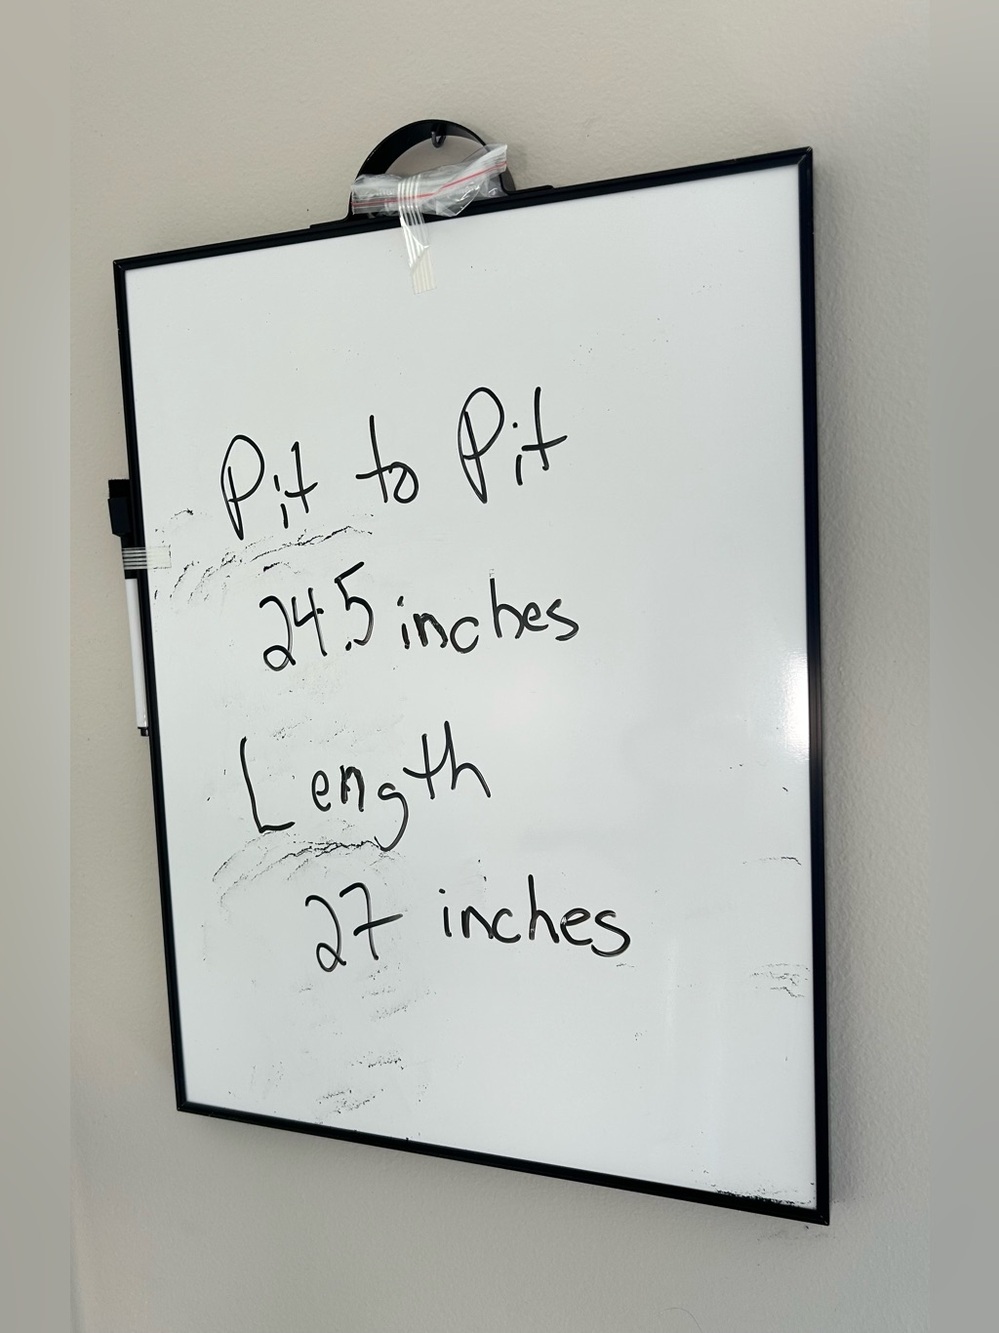 Pit to Pit
24.5 inches
Length
27 inches